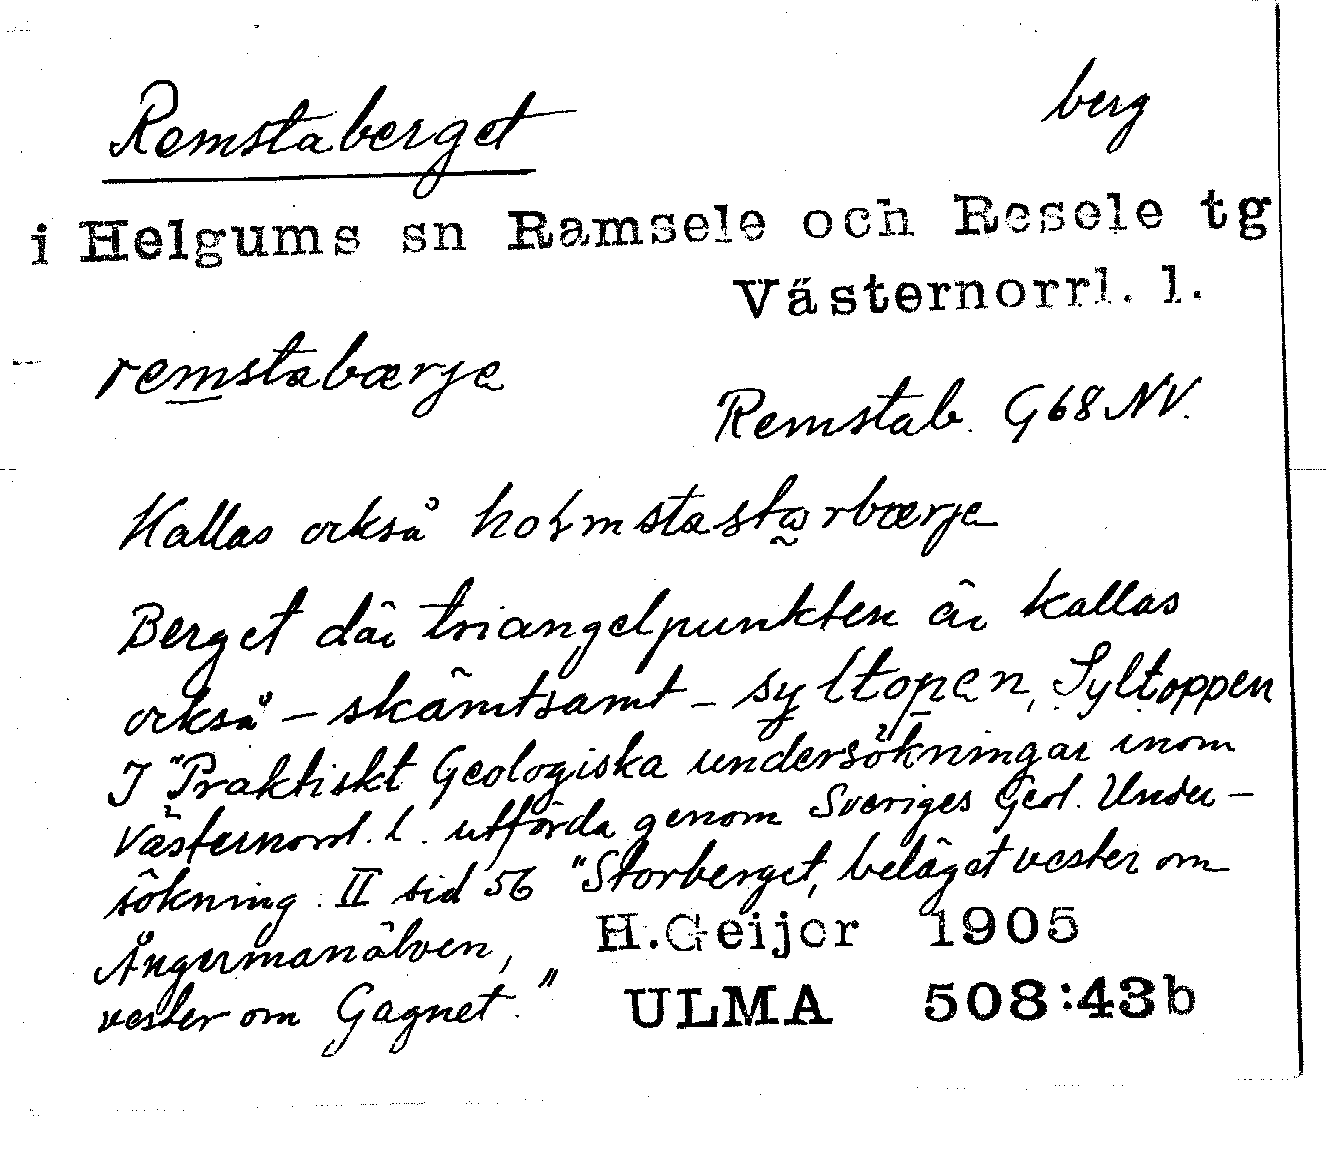 Remstaberget berg
i Helgums sn Ramsele och Resele tg
Västernorrl. l.
remstabærje
Remstab. G68 NV.
Kallas också holmstastorbærje
Berget där triangelpunkten är kallas
också – skämtsamt – syltopen, Syltoppen
I "Praktiskt Geologiska undersökningar inom
Västernorrl. l. utförda genom Sveriges Geol. Under-
sökning. II sid 56 "Storberget, beläget vester om
Ångermanälven,
vester om Gagnet."
H.Geijer 1905
ULMA 508:43b